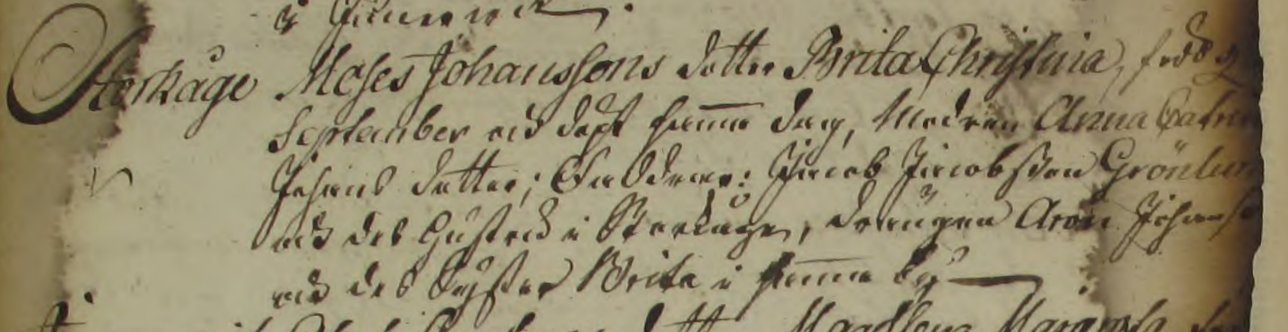 Storkåge Moses Johanssons dotter Brita Christina, född
September och döpt samma dag, Modren Anna Catri
Johans dotter; Faddrar: Jacob Jacobsson Grönlun
och des Hustru i Storkåge, drängen Aron Johans
och des Syster Brita i samma by
dotter Magdlena Margreta